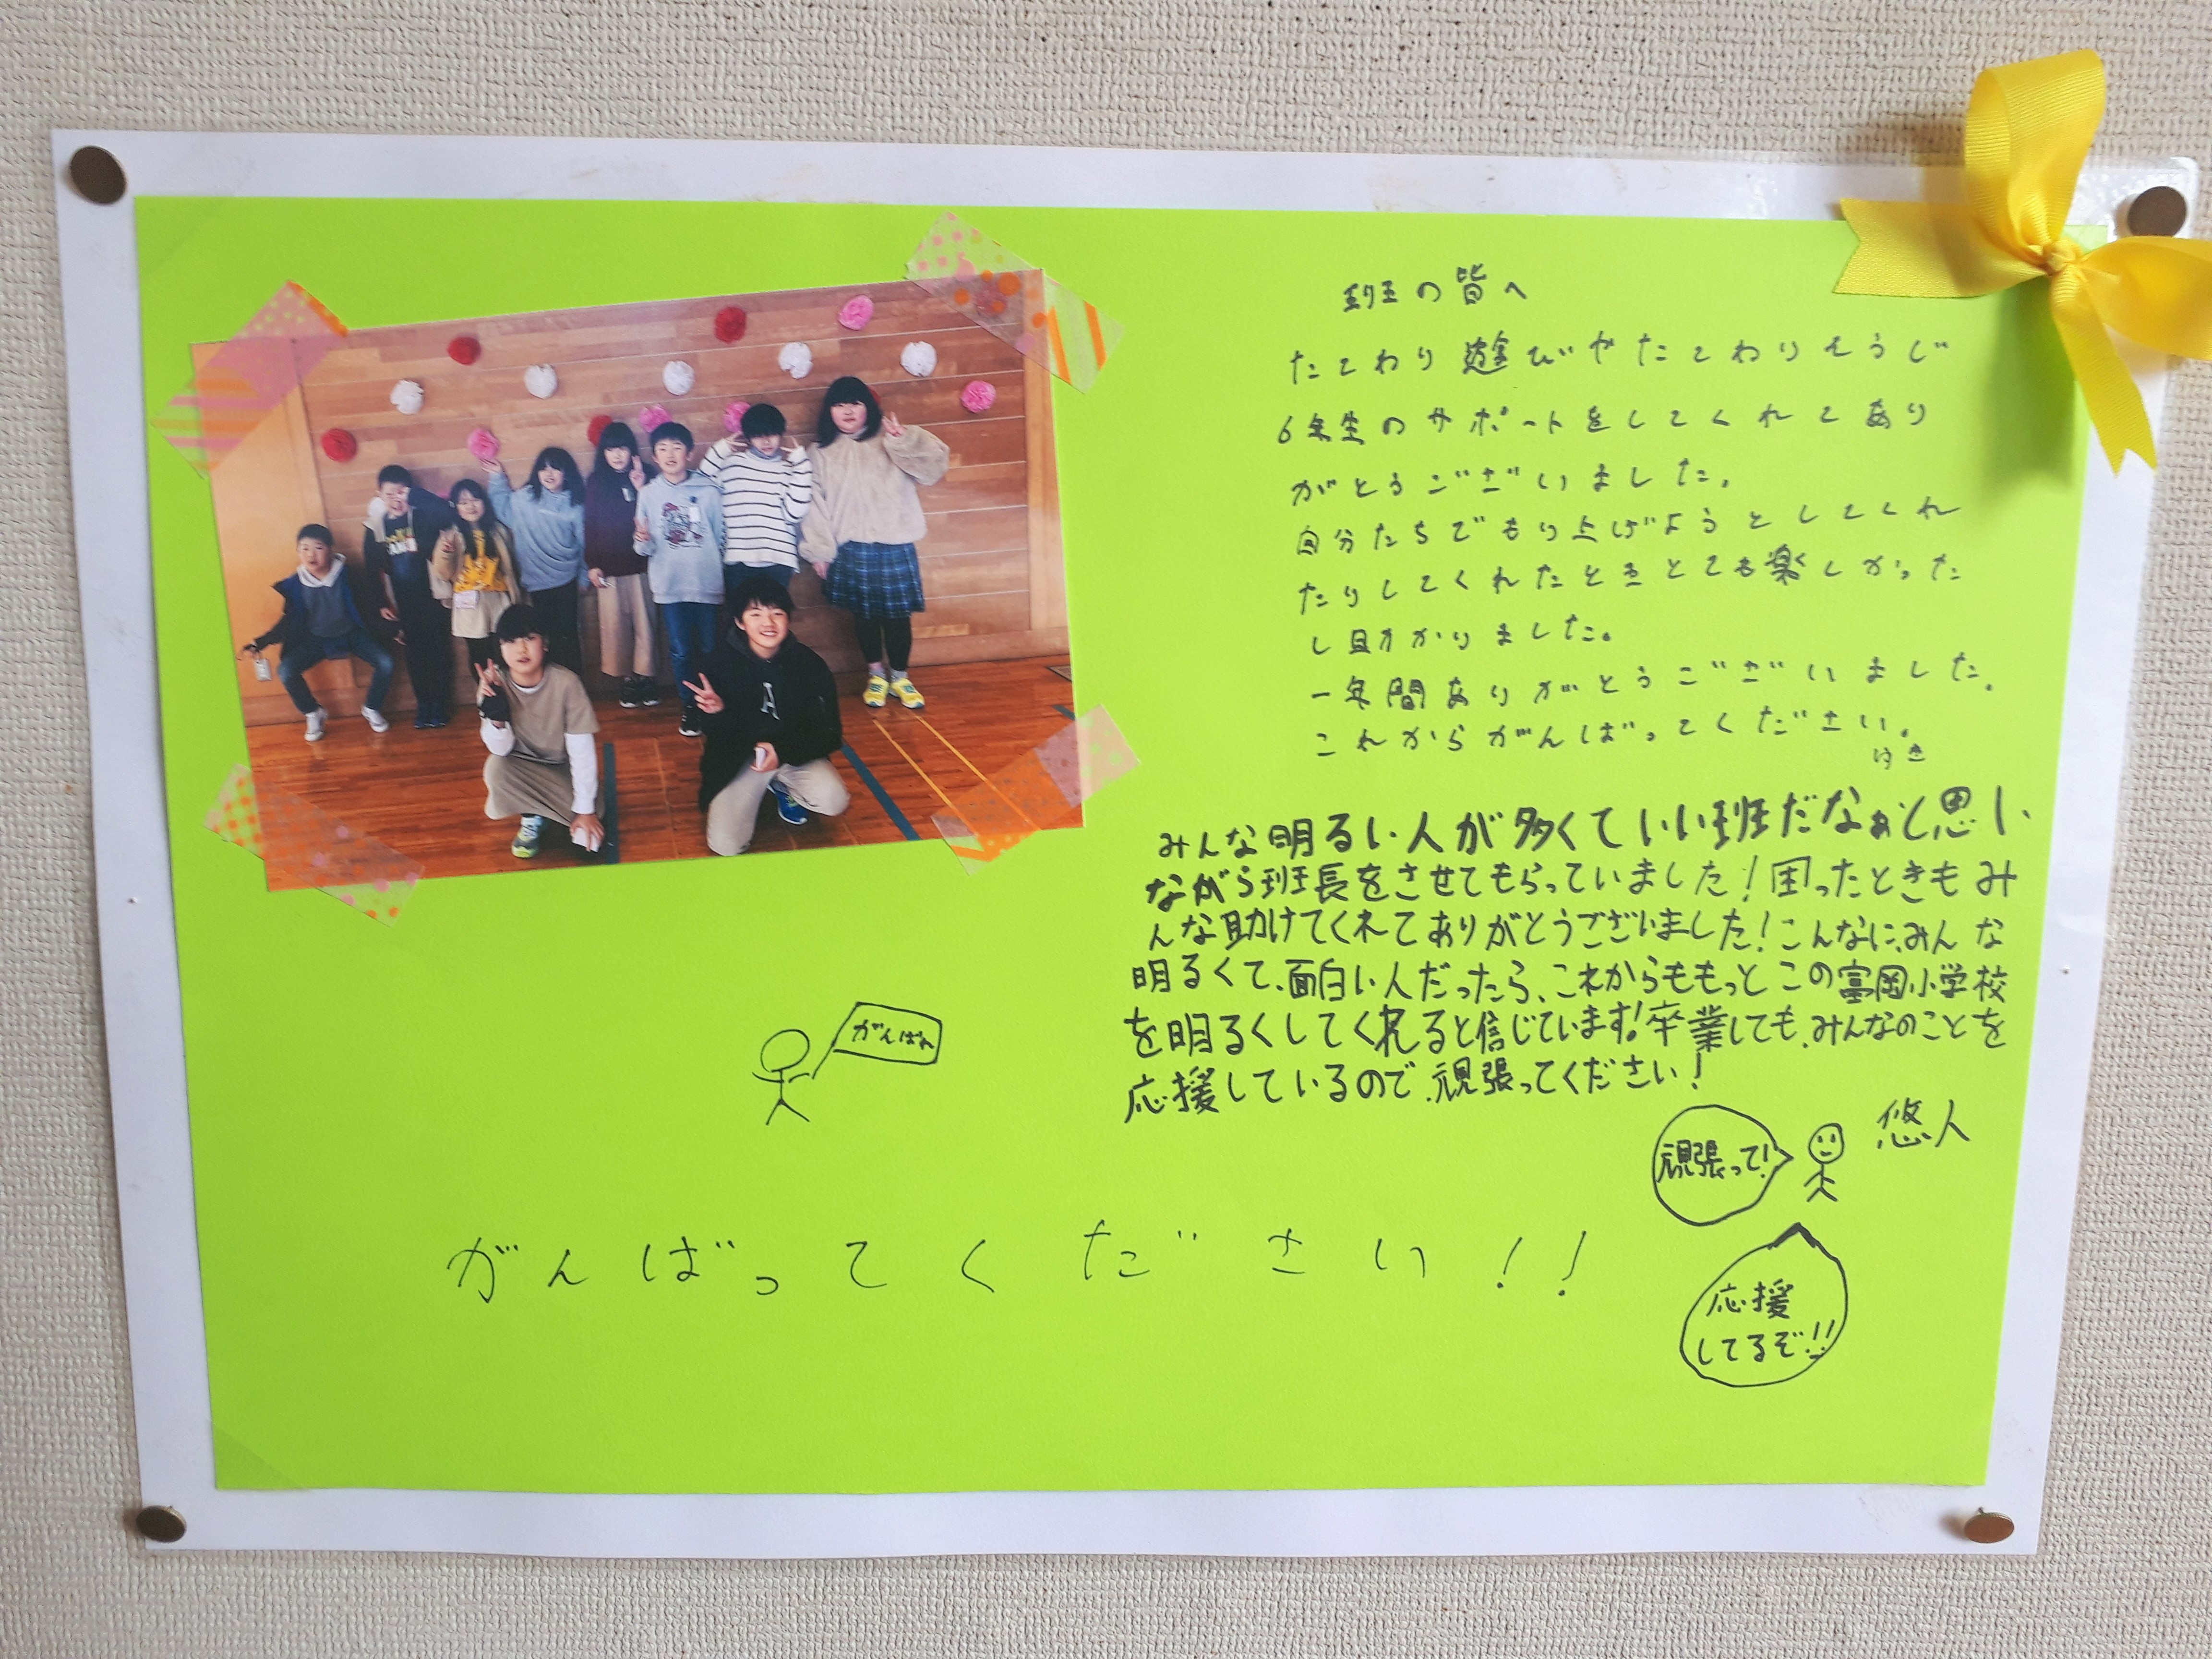 班の皆へ
たてわり遊びやたてわりそうじ
6年生のサポートをしてくれてあり
がとうございました。
自分たちでもり上げようとしてくれ
たりしてくれたときとても楽しかった
し助かりました。
一年間ありがとうございました。
これからがんばってください。
みんな明るい人が多くていい班だなぁと思い
ながら班長をさせてもらっていました!困ったときもみ
んな助けてくれてありがとうございました!こんなに、みんな
明るくて、面白い人だったら、これからももっとこの富岡小学校
を明るくしてくれると信じています!卒業しても、みんなのことを
応援しているので、頑張ってください!
悠人
頑張って!
応援
してるぞ!!
がんばれ
がんばってください!!